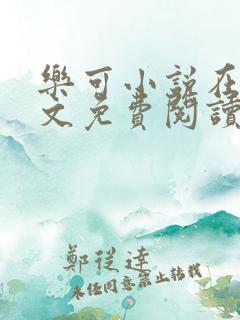 樂可小說在
文免費閱讀
鄭從達
未經同意禁止轉載